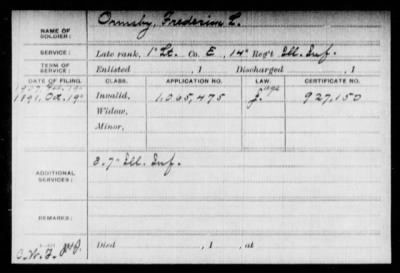 NAME OF SOLDIER: Ormsby, Frederick L.
SERVICE: Late rank, 1" Lt. Co. E, 14" Reg't Ill. Inf.
TERM OF SERVICE: Enlisted , 1 Discharged , 1
DATE OF FILING. CLASS. APPLICATION NO. LAW. CERTIFICATE NO.
1891, Oct. 19" Invalid, 1,065,475 J. 927,150
Widow,
Minor,
ADDITIONAL SERVICES: E. 7" Ill. Inf.
REMARKS:
Died , 1 , at